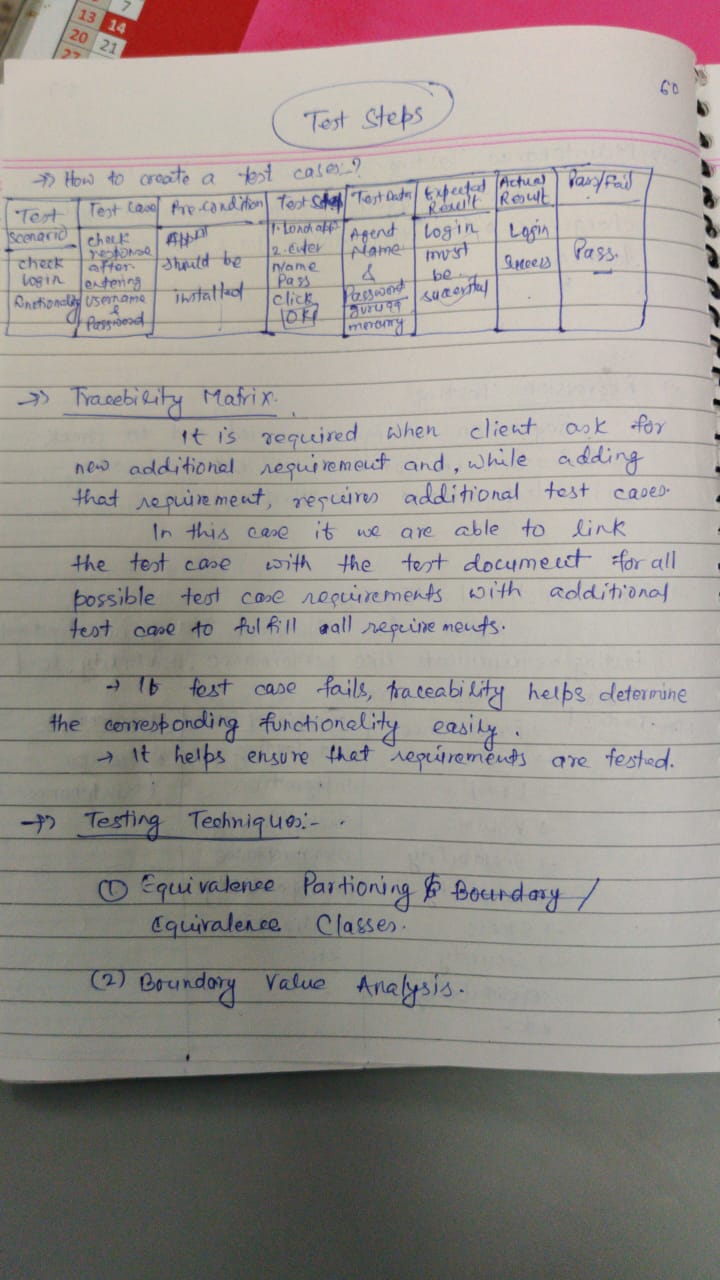 7
13 14
20 21
27
60
Test Steps
→» How to create a test cases:-?
Test Scenario | Test Case | Pre.Condition | Test Step | Test Data | Expected Result | Actual Result | Pass/Fail
check Login Functionality | check response after entering Username & Password | Appl should be installed | 1. Load app 2. Enter Name Pass click OK | Agent Name & Password guru99 mercury | Login must be successful | Login Success | Pass.
→» Tracebility Matrix.
It is required when client ask for
new additional requirement and, while adding
that requirement, requires additional test cases.
In this case it we are able to link
the test case with the test document for all
possible test case requirements with additional
test case to fulfill all requirements.
→ If test case fails, traceability helps determine
the corresponding functionality easily.
→ It helps ensure that requirements are tested.
→» Testing Techniques:- .
① Equivalence Partioning & Boundary /
Equivalence Classes.
(2) Boundary Value Analysis.